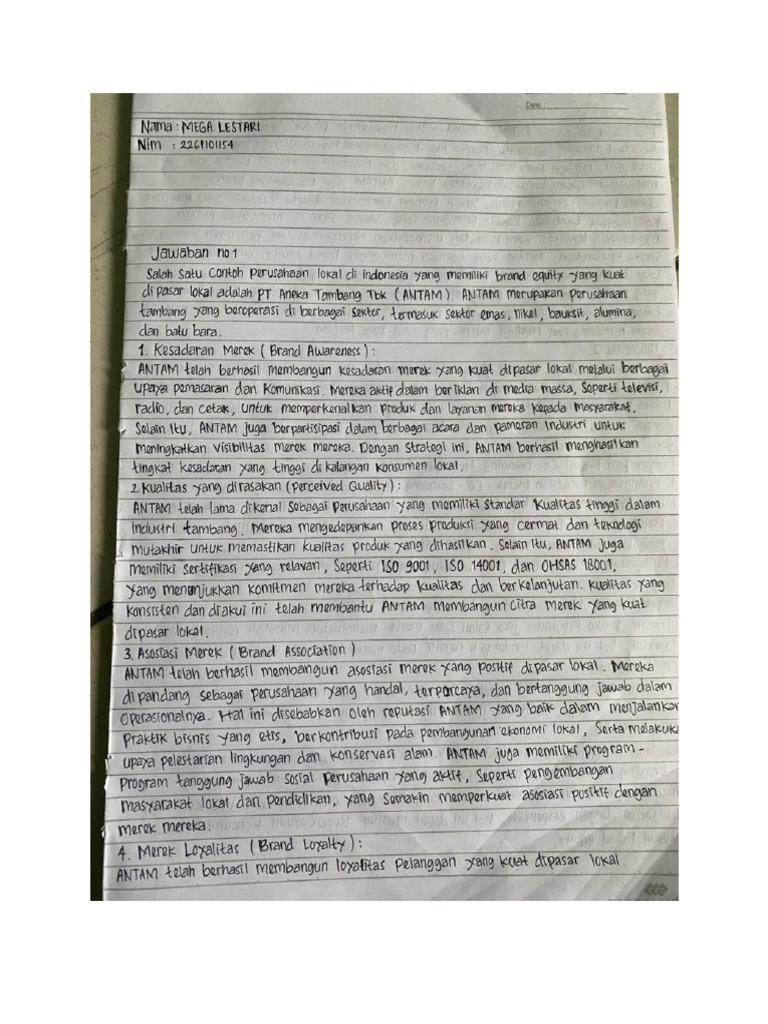 Date :
Nama : MEGA LESTARI
Nim : 2261101154
Jawaban no 1
Salah Satu Contoh Perusahaan lokal di indonesia yang memiliki brand equity yang kuat
di pasar lokal adalah PT Aneka Tambang Tbk (ANTAM). ANTAM merupakan perusahaan
tambang yang beroperasi di berbagai sektor, termasuk sektor emas, nikel, bauksit, alumina,
dan batu bara.
1. Kesadaran Merek (Brand Awareness) :
ANTAM telah berhasil membangun kesadaran merek yang kuat dipasar lokal melalui berbagai
upaya pemasaran dan Komunikasi. Mereka aktif dalam beriklan di media massa, Seperti televisi,
radio, dan cetak, untuk memperkenalkan produk dan layanan mereka kepada masyarakat.
Selain Itu, ANTAM juga berpartisipasi dalam berbagai acara dan pameran Industri untuk
meningkatkan visibilitas merek mereka. Dengan Strategi ini, ANTAM berhasil menghasilkan
tingkat kesadaran yang tinggi di kalangan konsumen lokal.
2 Kualitas yang dirasakan (perceived Quality) :
ANTAM telah lama dikenal Sebagai Perusahaan yang memiliki Standar Kualitas tinggi dalam
Industri tambang. Mereka mengedepankan proses produksi yang cermat dan teknologi
mutakhir untuk memastikan kualitas produk yang dihasilkan. Selain Itu, ANTAM juga
memiliki sertifikasi yang relavan, Seperti ISO 9001, ISO 14001, dan OHSAS 18001,
yang menunjukkan komitmen mereka terhadap kualitas dan berkelanjutan. kualitas yang
konsisten dan diakui ini telah membantu ANTAM membangun citra merek yang kuat
dipasar lokal.
3. Asosiasi Merek (Brand Association)
ANTAM telah berhasil membangun asosiasi merek yang Positif dipasar lokal. Mereka
dipandang sebagai perusahaan yang handal, terpercaya, dan bertanggung jawab dalam
Operasionalnya. Hal ini disebabkan oleh reputasi ANTAM yang baik dalam menjalankan
Praktik bisnis yang etis, berkontribusi pada pembangunan ekonomi lokal, Serta melakuka
upaya pelestarian lingkungan dan konservasi alam. ANTAM juga memiliki program-
Program tanggung jawab sosial perusahaan yang aktif, Seperti pengembangan
masyarakat lokal dan pendidikan, yang Semakin memperkuat asosiasi positif dengan
merek mereka.
4. Merek Loyalitas (Brand Loyalty) :
ANTAM telah berhasil membangun loyalitas Pelanggan yang kuat dipasar lokal.